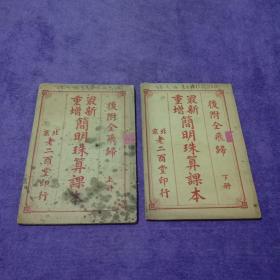 後附全飛歸
上冊
最新
重增
簡明珠算課本
北京
老二酉堂印行
後附全飛歸
下冊
最新
重增
簡明珠算課本
北京
老二酉堂印行